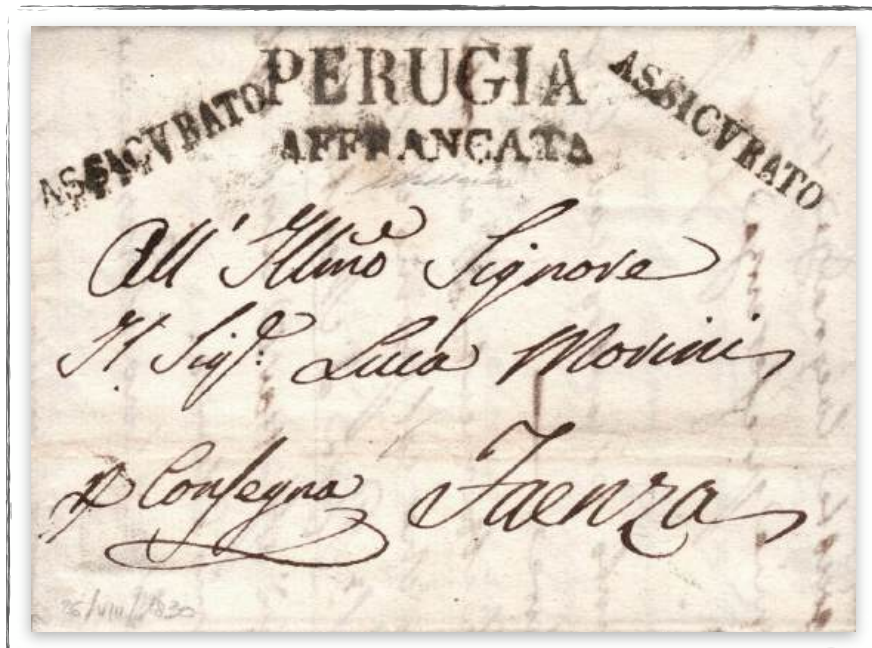 PERUGIA
ASSICVRATO
ASSICVRATO
AFFRANCATA
All' Illmo Signore
Il Sigr. Luca Morini
p Consegna Faenza
26/VIII/1830